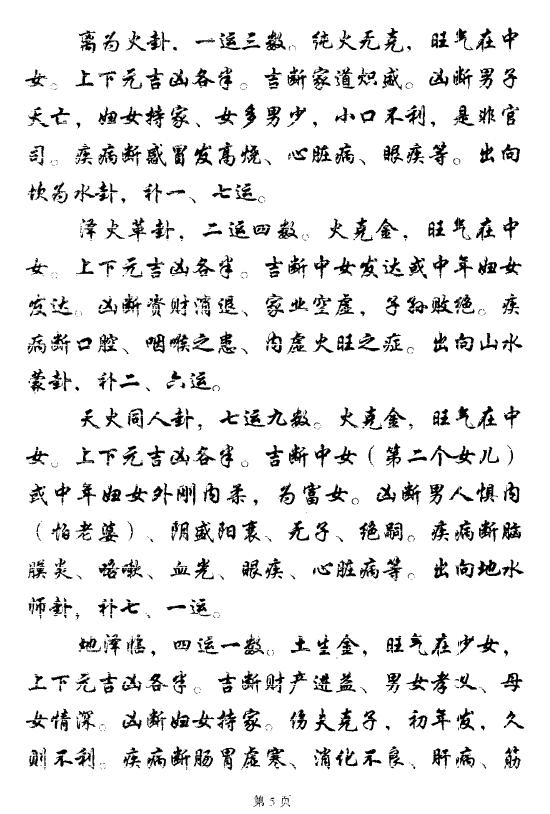 离为火卦，一运三数。纯火无克，旺气在中
女。上下元吉凶各半。吉断家道炽盛。凶断男子
夭亡，妇女持家、女多男少，小口不利，是非官
司。疾病断感冒发高烧、心脏病、眼疾等。出向
坎为水卦，补一、七运。
泽火革卦，二运四数。火克金，旺气在中
女。上下元吉凶各半。吉断中女发达或中年妇女
发达。凶断资财消退、家业空虚，子孙败绝。疾
病断口腔、咽喉之患、内虚火旺之症。出向山水
蒙卦，补二、六运。
天火同人卦，七运九数。火克金，旺气在中
女。上下元吉凶各半。吉断中女（第二个女儿）
或中年妇女外刚内柔，为富女。凶断男人惧内
（怕老婆）、阴盛阳衰、无子、绝嗣。疾病断脑
膜炎、咯嗽、血光、眼疾、心脏病等。出向地水
师卦，补七、一运。
地泽临，四运一数。土生金，旺气在少女，
上下元吉凶各半。吉断财产进益、男女孝义、母
女情深。凶断妇女持家。伤夫克子，初年发，久
则不利。疾病断肠胃虚寒、消化不良、肝病、筋
第 5 页